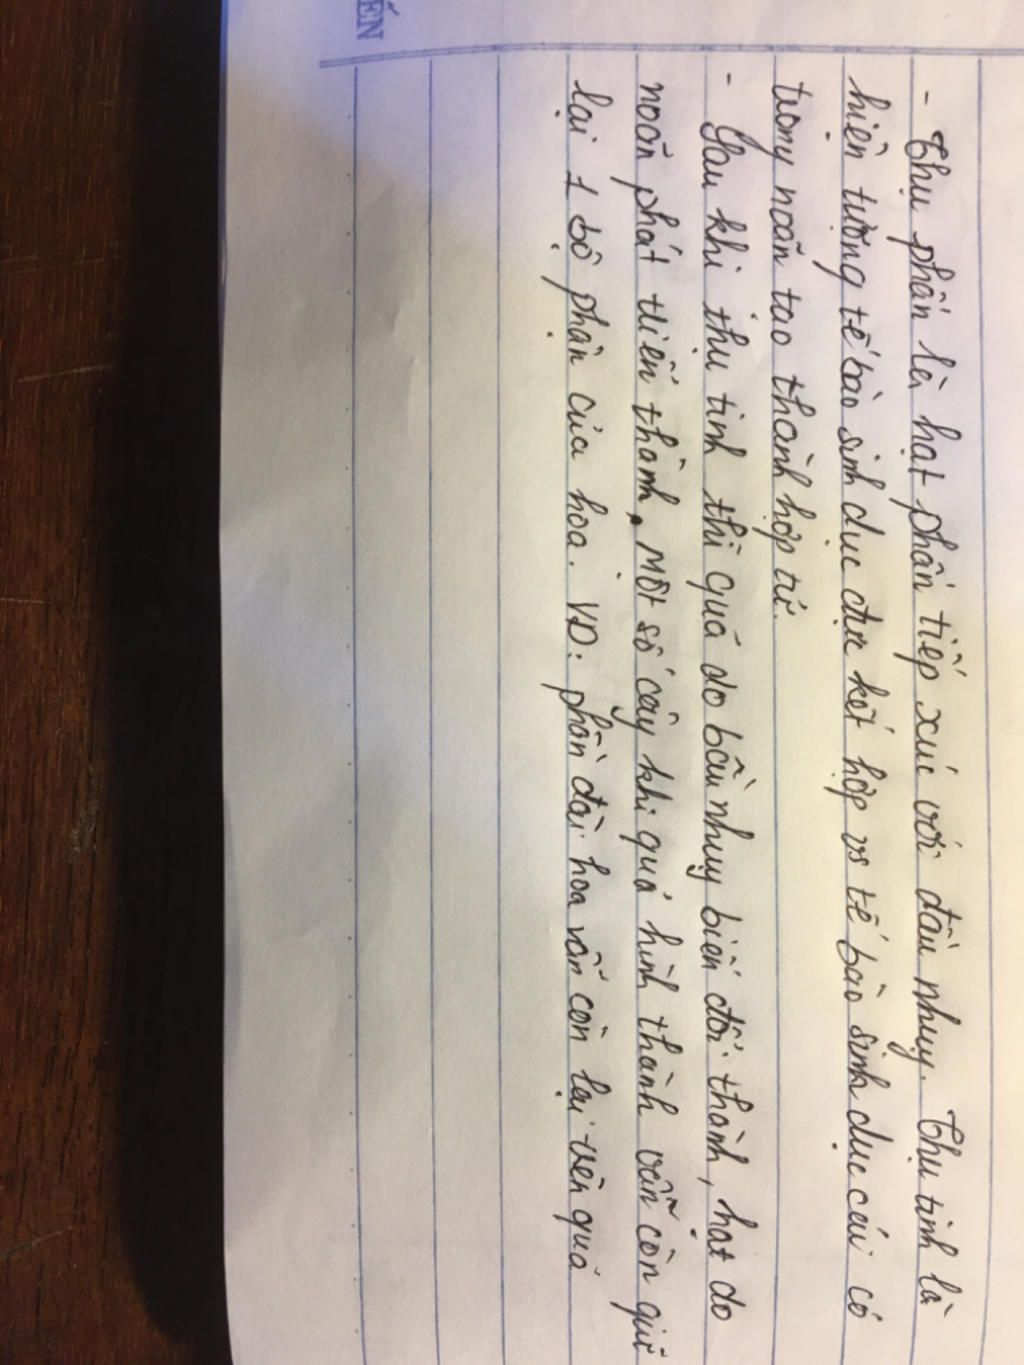 ẾN
- Thụ phấn là hạt phấn tiếp xúc với đầu nhụy. Thụ tinh là
hiện tượng tế bào sinh dục đực kết hợp vs tế bào sinh dục cái có
trong noãn tạo thành hợp tử.
- Sau khi thụ tinh thì quả do bầu nhụy biến đổi thành, hạt do
noãn phát triển thành. Một số cây khi quả hình thành vẫn còn giữ
lại 1 bộ phận của hoa. VD: phần đài hoa vẫn còn lại trên quả